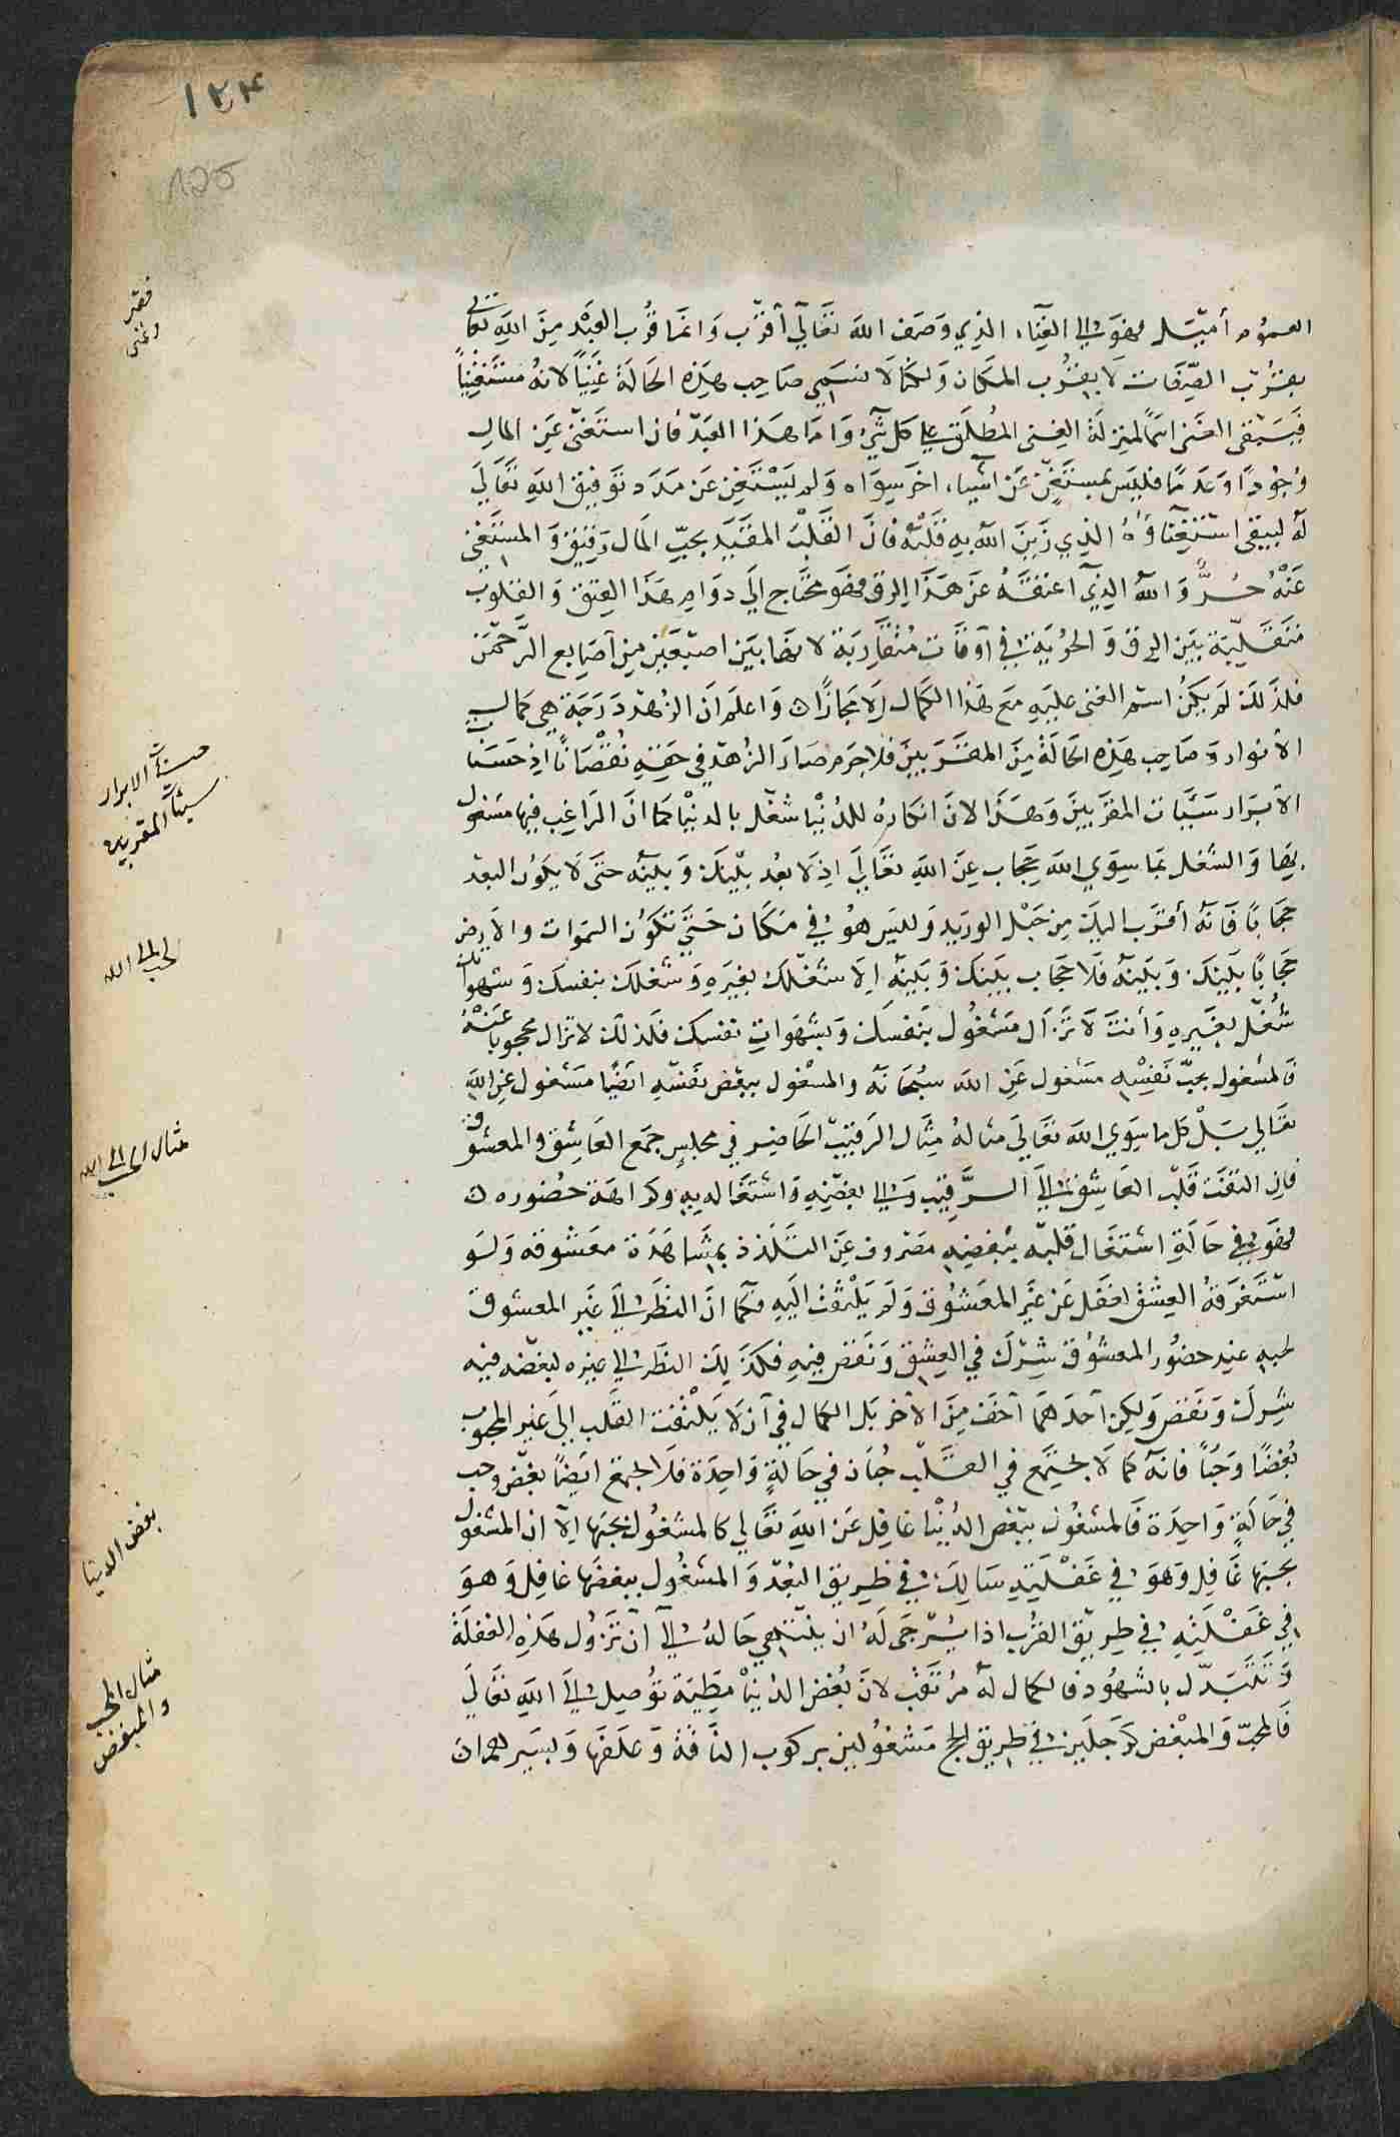 ١٢٤
125
فقر
وغنى
العموم أميل فهو الى الغناء الذي وصف الله تعالى أقرب وانما قرب العبد من الله تعالى
بقرب الصفات لا بقرب المكان ولكنا لا نسمي صاحب هذه الحالة غنيا لانه مستغنيا
فيبقى الغنى اسما لمن له الغنى المطلق على كل شيء واما هذا العبد فان استغنى عن المال
وجودا وعدما فليس بمستغن عن اشياء اخر سواه ولم يستغن عن مدد توفيق الله تعالى
له ليبقى استغناؤه الذي زين الله به قلبه فان القلب المقيد بحب المال رقيق والمستغني
عنه حر والله الذي اعتقه عن هذا الرق فهو محتاج الى دوام هذا العتق والقلوب
متقلبة بين الرق والحرية في أوقات متقاربة لانها بين اصبعين من أصابع الرحمن
فلذلك لم يكن اسم الغنى عليه مع هذا الكمال الا مجازا ٥ واعلم ان الزهد درجة هي كمال
الأبرار وصاحب هذه الحالة من المقربين فلا جرم صار الزهد في حقه نقصانا اذ حسنات
حسنات الابرار
سيئات المقربين
الأبرار سيئات المقربين وهذا لان الكاره للدنيا شغل بالدنيا كما ان الراغب فيها مشغول
بها والشغل بما سوى الله حجاب عن الله تعالى اذ لا بعد بينك وبينه حتى لا يكون البعد
حجابا فانه أقرب اليك من حبل الوريد وليس هو في مكان حتى تكون السموات والارض
الحب الى الله
حجابا بينك وبينه فلا حجاب بينك وبينه الا شغلك بغيره وشغلك بنفسك وشهواتك
شغل بغيره وأنت لا تزال مشغول بنفسك وبشهوات نفسك فلذلك لا تزال محجوبا عنه
فالمشغول بحب نفسه مشغول عن الله سبحانه والمشغول ببغض نفسه ايضا مشغول عن الله
تعالى بل كل ما سوى الله تعالى مثاله مثال الرقيب الحاضر في مجلس جمع العاشق والمعشوق
مثال الحب الى الله
فان التفت قلب العاشق الى الرقيب والى بغضه واشتغاله به وكراهة حضوره ٥
فهو في حالة اشتغال قلبه ببغضه مصروف عن التلذذ بمشاهدة معشوقه ولو
استغرقه العشق لغفل عن غير المعشوق ولم يلتفت اليه فكما ان النظر الى غير المعشوق
لحبه عند حضور المعشوق شرك في العشق ونقص فيه فكذلك النظر الى غيره لبغضه فيه
شرك ونقص ولكن أحدهما أخف من الأخر بل الكمال في أن لا يلتفت القلب الى غير المحبوب
بغضا وحبا فانه كما لا يجتمع في القلب حبان في حالة واحدة فلا يجتمع ايضا بغض وحب
في حالة واحدة فالمشغول ببغض الدنيا غافل عن الله تعالى كالمشغول بحبها الا ان المشغول
بغض الدنيا
بحبها غافل وهو في غفلته سالك في طريق البعد والمشغول ببغضها غافل وهو
في غفلته في طريق القرب اذا يرجى له ان ينتهي حاله الى أن تزول هذه الغفلة
وتتبدل بالشهود فالكمال له مرتقب لان بغض الدنيا مطية توصل الى الله تعالى
فالمحب والمبغض كرجلين في طريق الحج مشغولين بركوب الناقة وعلفها وبسيرها
مثال المحب
والمبغض